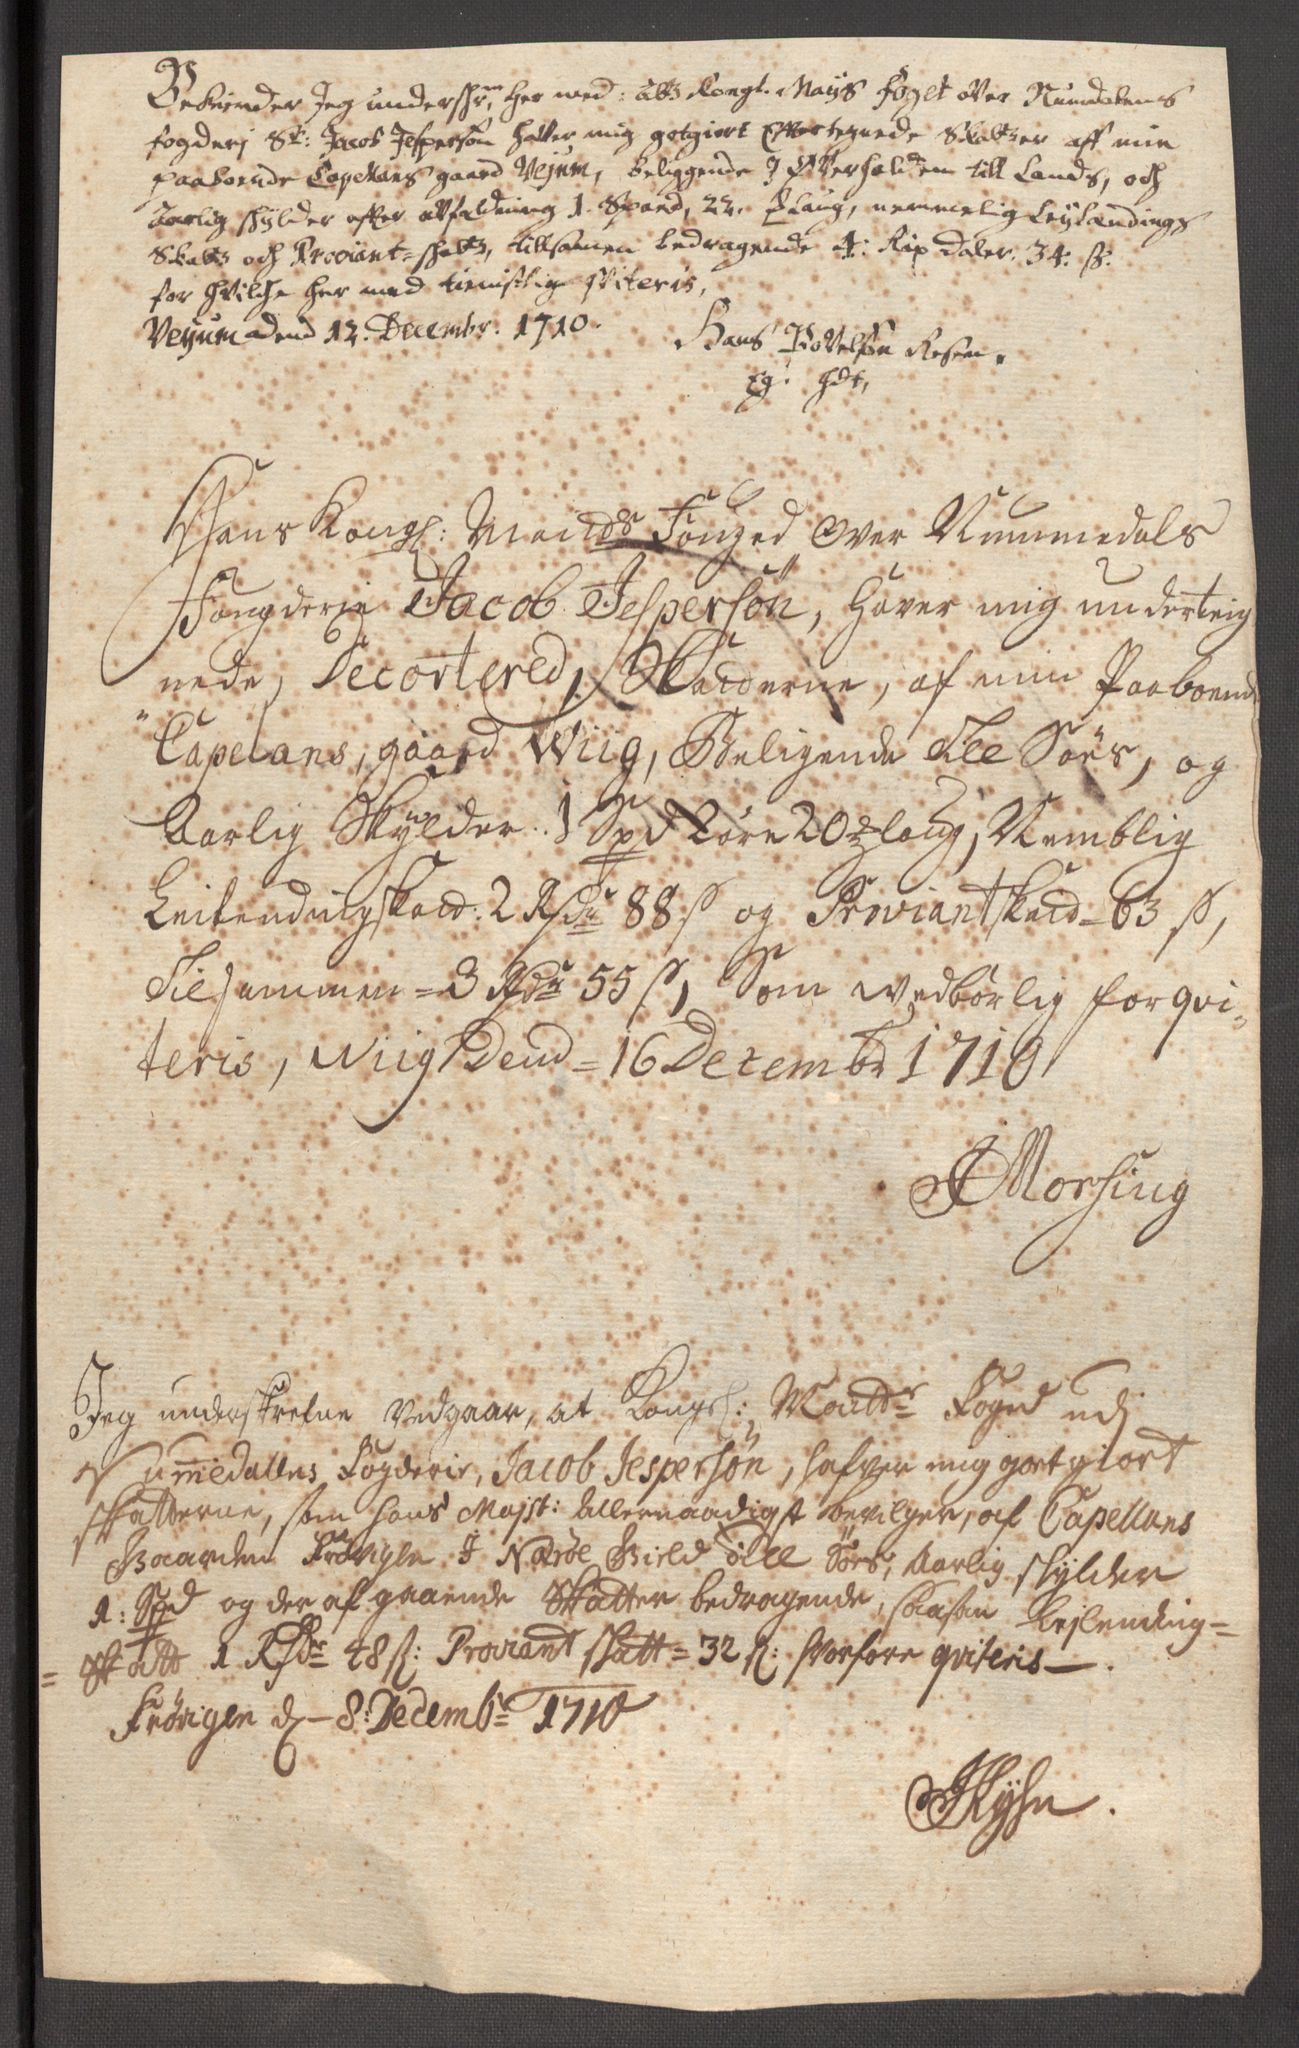 Bekiender Jeg underskr: her med: att Kongl. Mayts Foget over Nummedalens
fogderj Sr: Jacob Jespersøn hafver mig gotgiort Effterteignede Skatter aff min
paaboende Capellans gaard Vejum, beliggende J Ofverhalden till Lands, och
Aarlig skylder efter affeldning 1. Spand, 22. laug, nemmelig Leylendings
Skatt och Proviant-skatt, tillsamen bedragende 4: Rix Daler. 34: s.
for hvilche her med tienstlig qviteris,
Vejum dend 12. Decembr. 1710.
Hans Povelsøn Resen.
Hans Kongl: Maÿtts Fouged Over Nummedals
Fougderie Jacob Jespersøn, haver mig underteig
nede, Decortered, Skatterne, af min Paaboend
Capelans, gaard Wiig, Beligende Til Søes, og
Aarlig Skylder 1 Spd 2 øre 20 laug, Nemblig
Leilendingskat: 2 Rdr 88 s og Proviantskat 63 s,
Tilsammen = 3 Rdr 55 s, Som wedbørlig for qvi-
teris, Wiig Dend = 16 Decembr 1710
Morsing
Jeg underskrefne Vedgaar, at Kongl: Maytts Foged udj
Nummedallens Fogderie, Jacob Jespersøn, hafver mig godtgiort
skatterne, som hans Mayst: Allernaadigst bevilger, af Capellans
Gaarden Frøvigen J Nærøe Gield Till Søes, Aarlig skylder
1: Spd og der af gaaende Skatter bedragende, saasom Leylending=
= Skatt 1 Rdr 48 s: Proviant skatt = 32 s: hvorfore qviteris —.
Frøvigen d. 8: Decembr 1710